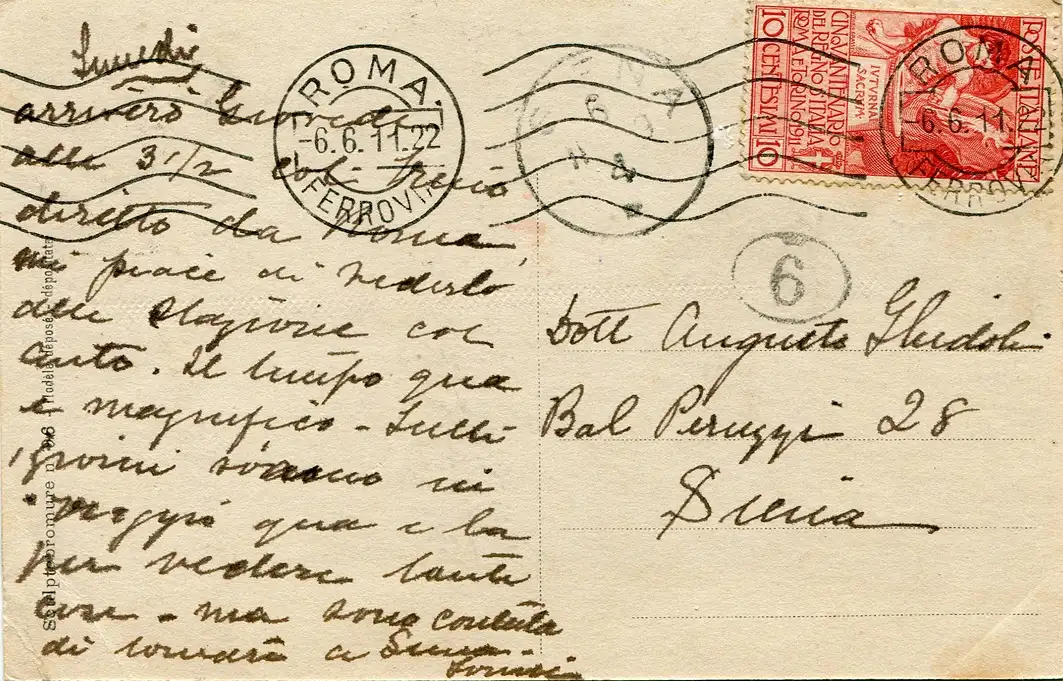 Lunedi
arriverò Giovedi
alle 3 1/2 col treno
diretto da Roma
mi piace di vederlo
alla stazione col
auto. Il tempo qua
è magnifico - Tutti
i giorni siamo in
viaggio qua e la
per vedere tante
cose - ma sono contenta
di tornare a Siena -
ROMA.
-6.6.11.22
FERROVIA
SIENA
6
6
POSTE ITALIANE
CINQVANTENARIO
DEL REGNO D'ITALIA
ROMA TORINO 1911
10 CENTESIMI 10
IVTVRNA
SACRVM
ROMA.
-6.6.11.22
FERROVIA
Dott Augusto Ghidoli
Bal Peruzzi 28
Siena
Sculpto-bromure Modèle déposé dépontate